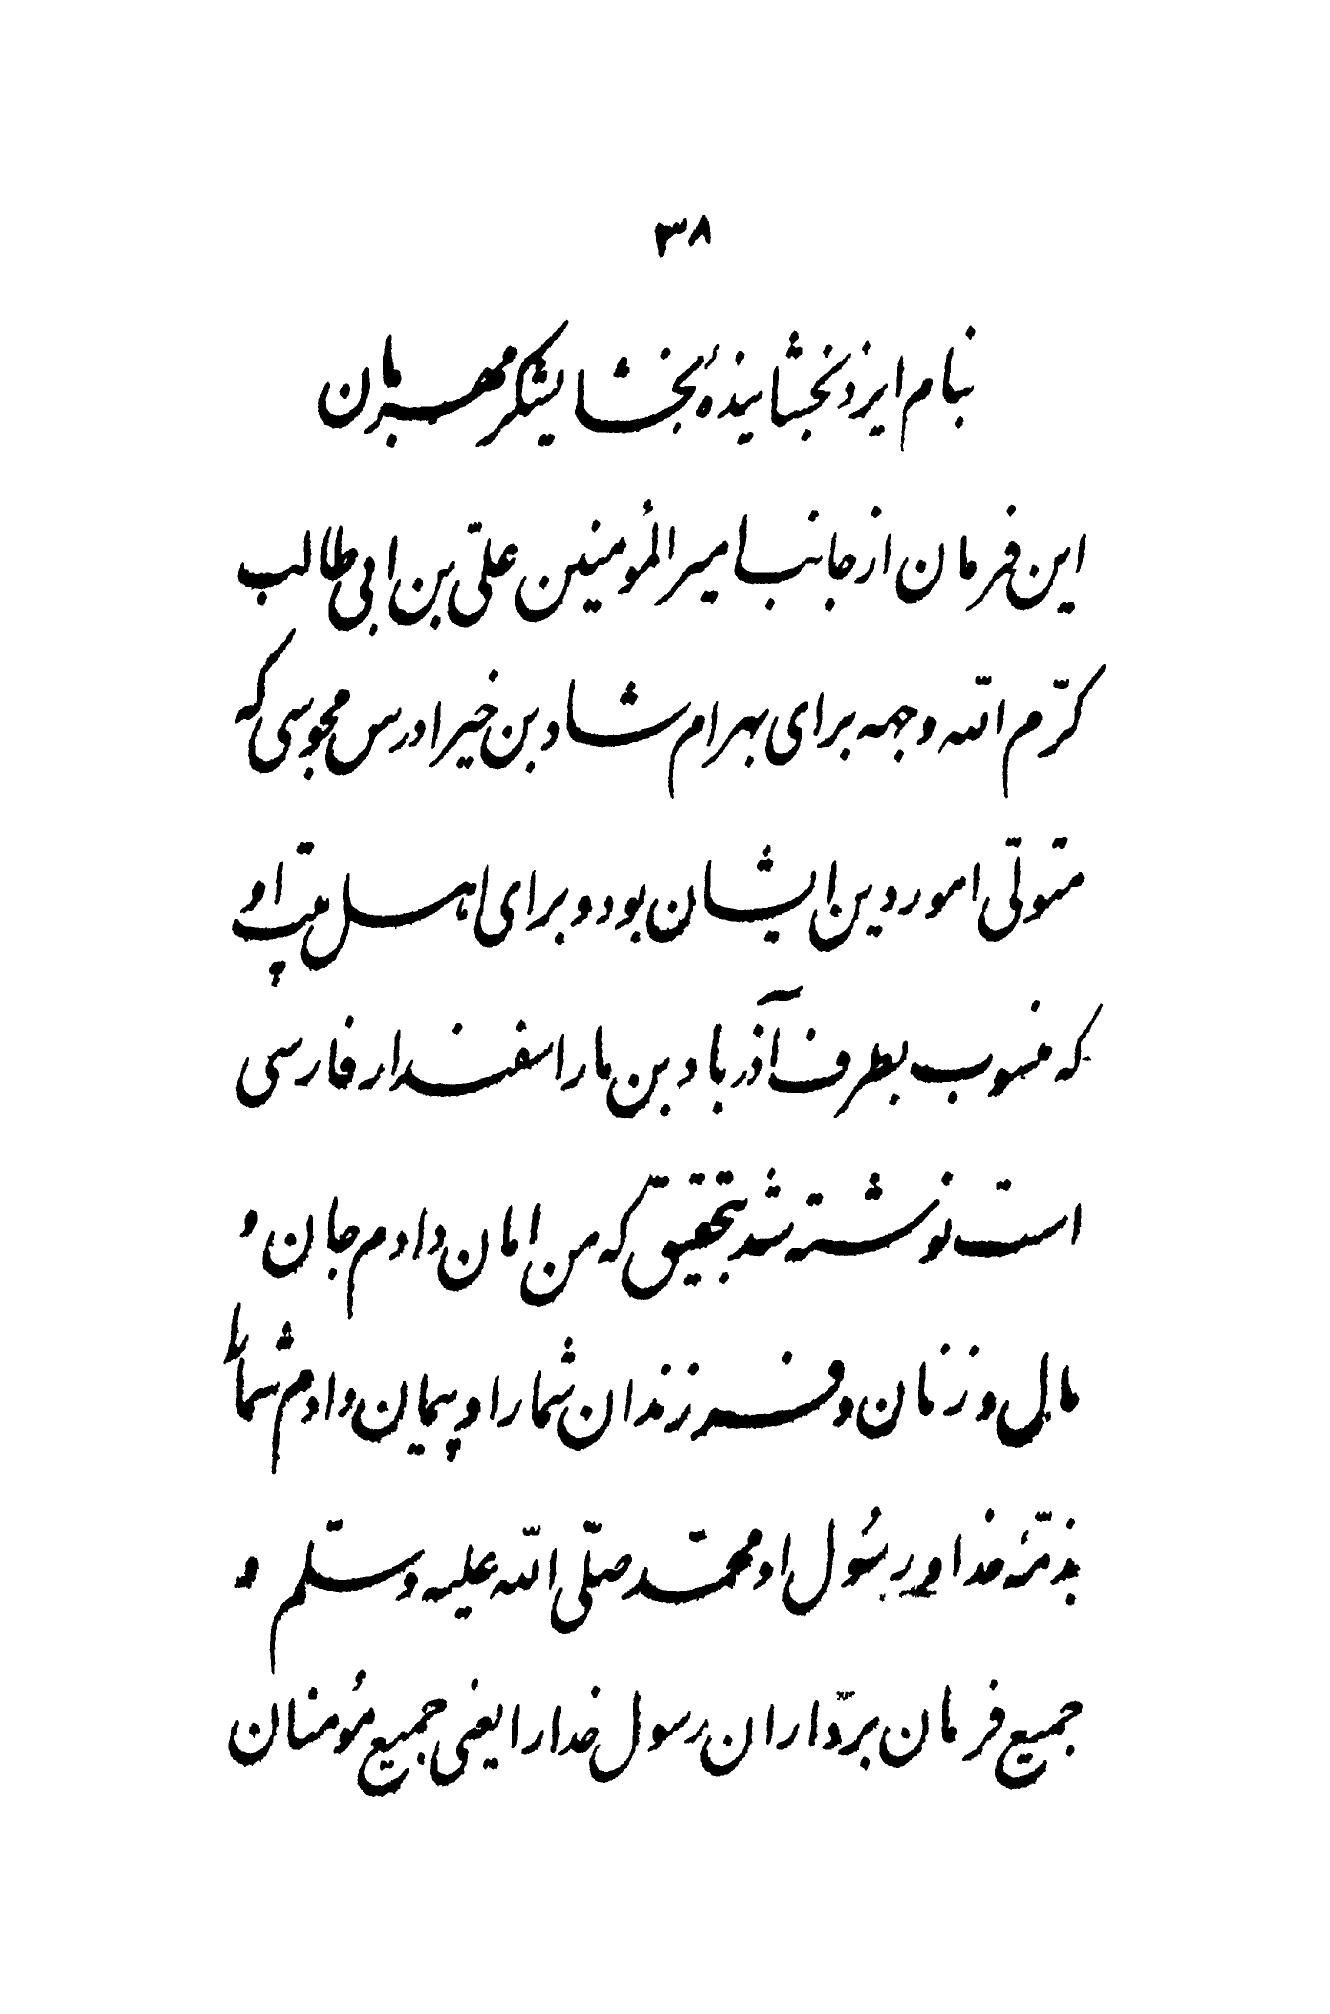 ۳۸
بنام ایزد بخشایندهٔ بخشایشگر مهربان
این فرمان از جانب امیر المؤمنین علیّ بن ابی طالب
کرّم اللّه وجهه برای بهرام شاد بن خیرادرس مجوسی که
متولّی امور دین ایشان بود و برای اهل بیت او
که منسوب بطرف آذرباد بن ماراسفندار فارسی
است نوشته شد بتحقیق که من امان دادم جان و
مال و زنان و فرزندان شما را و پیمان دادم شما را
بذمّهٔ خدا و رسُول او محمّد صلّی اللّه علیه و سلّم و
جمیع فرمان برداران رسول خدا را یعنی جمیع مؤمنان